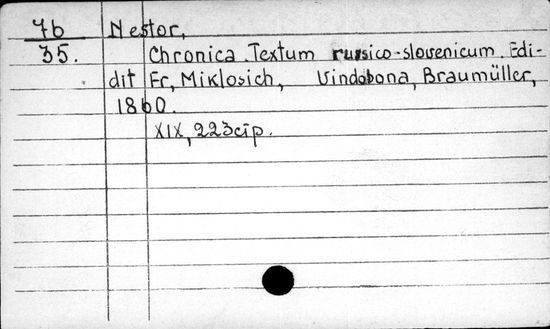 76 Nestor,
35. Chronica. Textum russico-slovenicum. Edi-
dit Fr, Miklosich, Vindobona, Braumüller,
1860.
XIX, 223 cip.